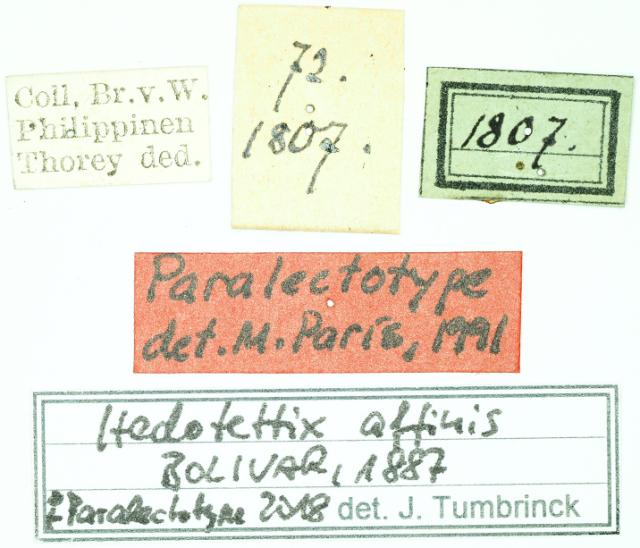 Coll. Br. v. W.
Philippinen
Thorey ded.
72.
1807.
1807.
Paralectotype
det. M. París, 1991
Hedotettix affinis
BOLIVAR, 1887
Paralectotype 2018 det. J. Tumbrinck